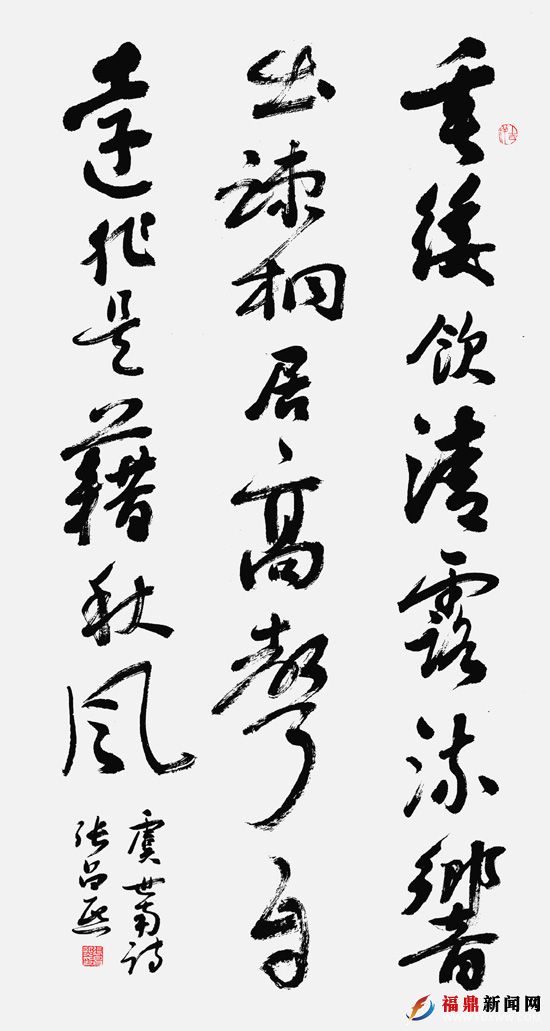 垂緌飲清露流響
出疎桐居高聲自
遠非是藉秋風
虞世南詩
張昌熙
福鼎新闻网